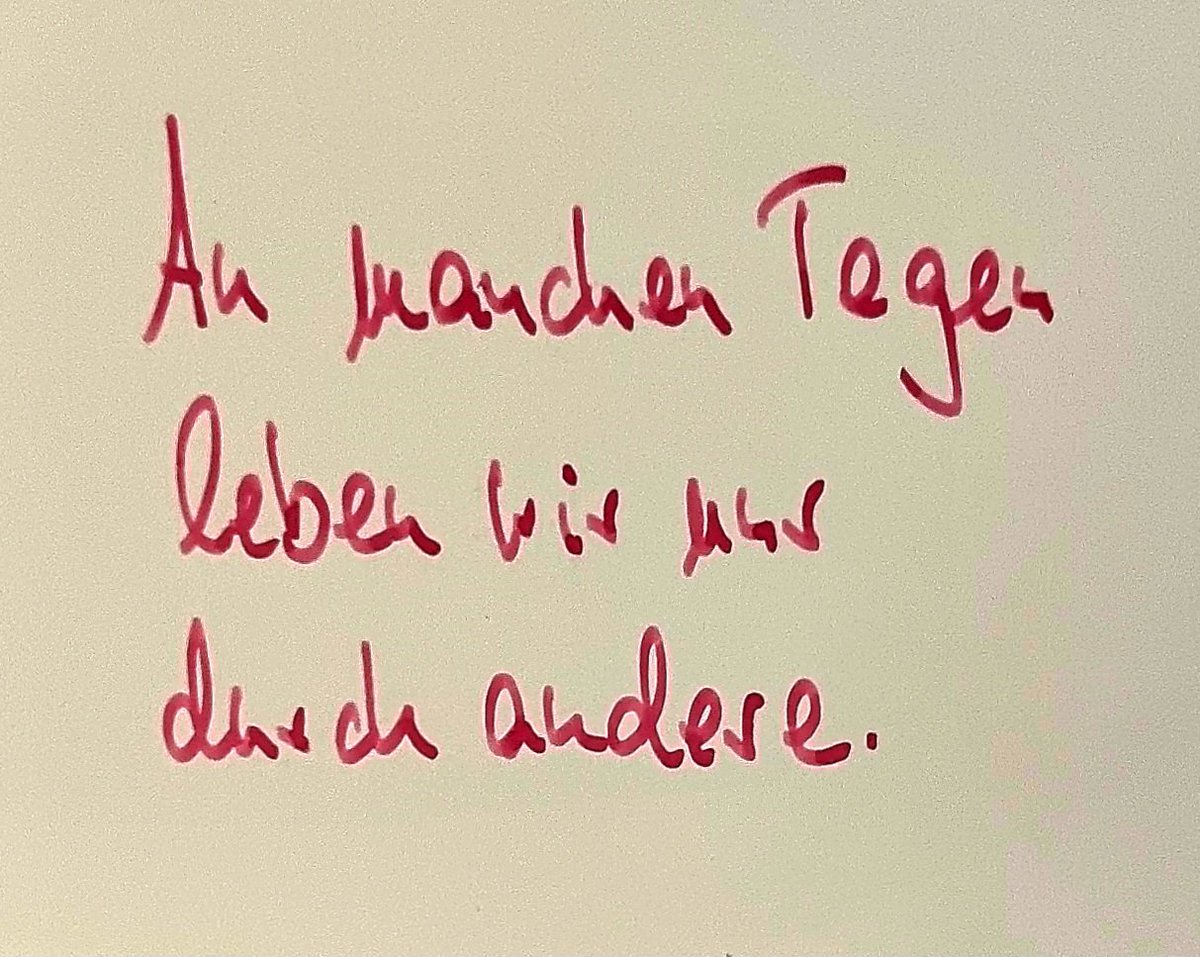 An manchen Tagen
leben wir nur
durch andere.